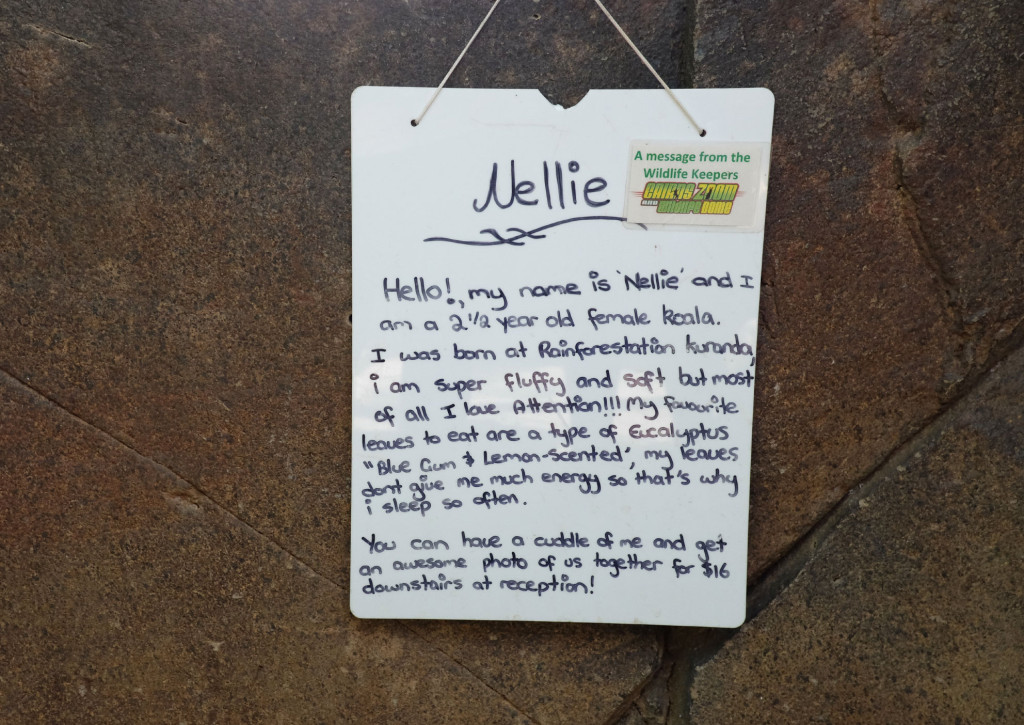 Nellie
A message from the
Wildlife Keepers
CAIRNS ZOOM
AND WILDLIFE DOME
Hello!, my name is 'Nellie' and I
am a 2 1/2 year old female koala.
I was born at Rainforestation Kuranda,
i am super fluffy and soft but most
of all I love Attention!!! My favourite
leaves to eat are a type of Eucalyptus
"Blue Gum & Lemon-Scented", my leaves
dont give me much energy so that's why
i sleep so often.
You can have a cuddle of me and get
an awesome photo of us together for $16
downstairs at reception!